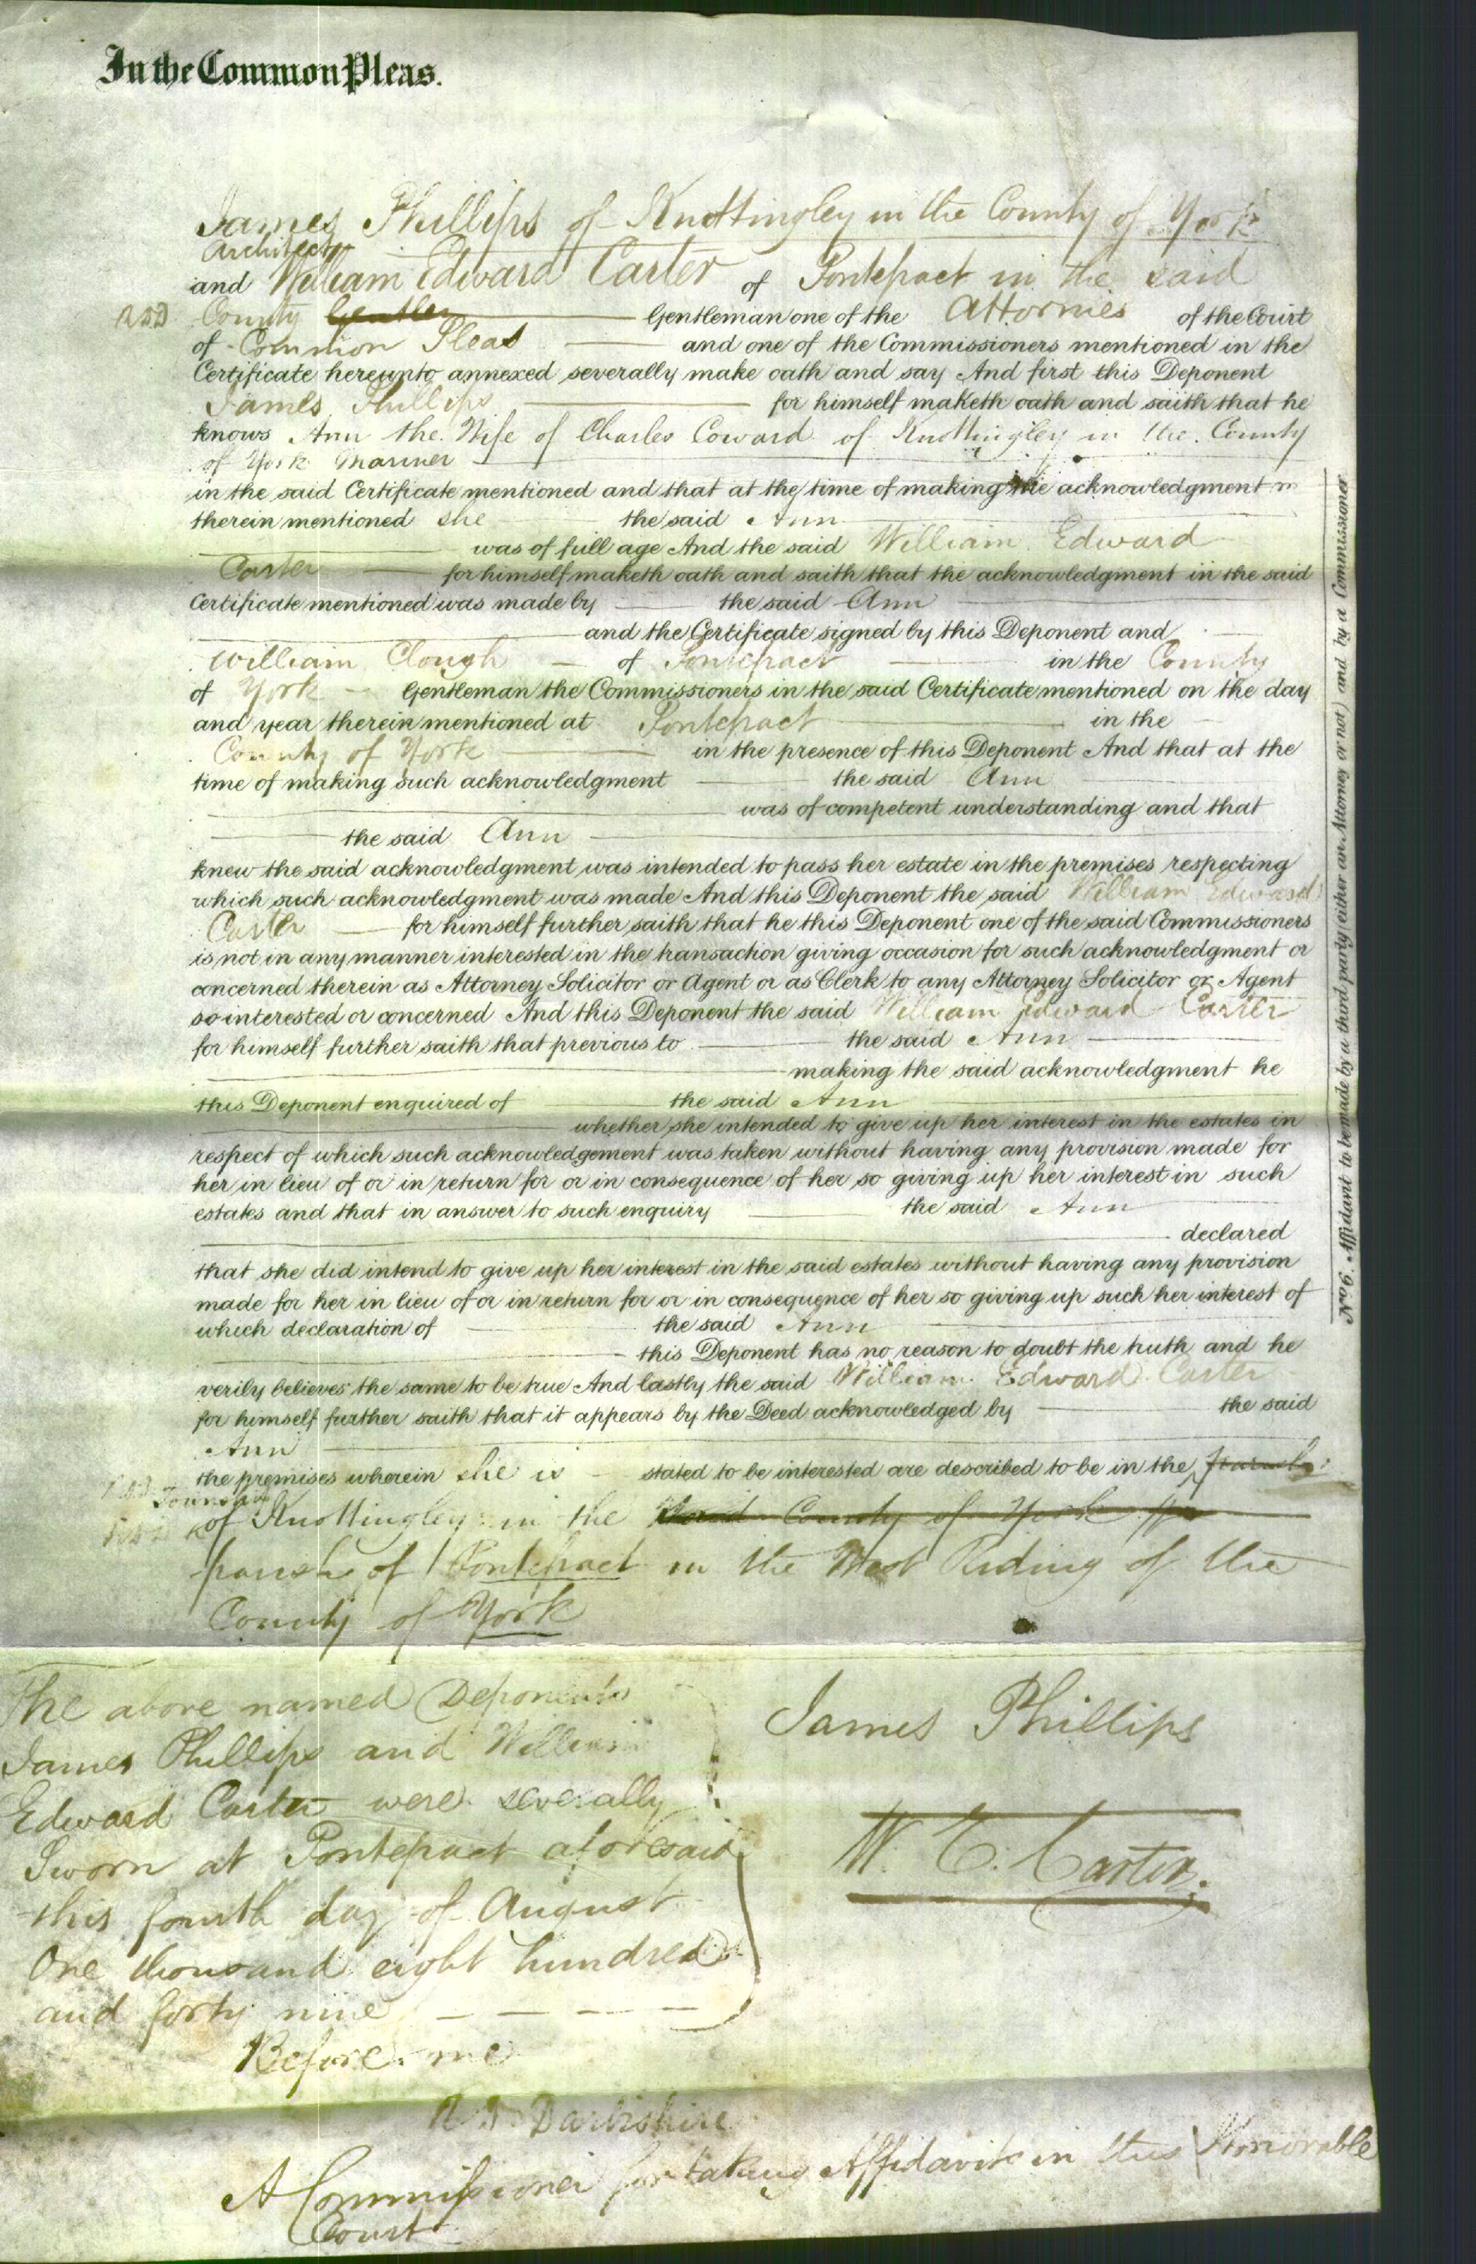 In the Common Pleas.
James Phillips of Knottingley in the County of York
Architect
and William Edward Carter of Pontefract in the said
County Gentleman one of the Attornies of the Court
of Common Pleas and one of the Commissioners mentioned in the
Certificate hereunto annexed severally make oath and say And first this Deponent
James Phillips for himself maketh oath and saith that he
knows Ann the Wife of Charles Coward of Knottingley in the County
of York Mariner
in the said Certificate mentioned and that at the time of making the acknowledgment
therein mentioned she the said Ann
was of full age And the said William Edward
Carter for himself maketh oath and saith that the acknowledgment in the said
Certificate mentioned was made by the said Ann
and the Certificate signed by this Deponent and
William Clough of Pontefract in the County
of York Gentleman the Commissioners in the said Certificate mentioned on the day
and year therein mentioned at Pontefract in the
County of York in the presence of this Deponent And that at the
time of making such acknowledgment the said Ann
was of competent understanding and that
the said Ann
knew the said acknowledgment was intended to pass her estate in the premises respecting
which such acknowledgment was made And this Deponent the said William Edward
Carter for himself further saith that he this Deponent one of the said Commissioners
is not in any manner interested in the transaction giving occasion for such acknowledgment or
concerned therein as Attorney Solicitor or Agent or as Clerk to any Attorney Solicitor or Agent
so interested or concerned And this Deponent the said William Edward Carter
for himself further saith that previous to the said Ann
making the said acknowledgment he
this Deponent enquired of the said Ann
whether she intended to give up her interest in the estates in
respect of which such acknowledgement was taken without having any provision made for
her in lieu of or in return for or in consequence of her so giving up her interest in such
estates and that in answer to such enquiry the said Ann
declared
that she did intend to give up her interest in the said estates without having any provision
made for her in lieu of or in return for or in consequence of her so giving up such her interest of
which declaration of the said Ann
this Deponent has no reason to doubt the truth and he
verily believes the same to be true And lastly the said William Edward Carter
for himself further saith that it appears by the Deed acknowledged by the said
Ann
the premises wherein she is stated to be interested are described to be in the
Township
of Knottingley in the said County of York
parish of Pontefract in the West Riding of the
County of York
The above named Deponents
James Phillips and William
Edward Carter were severally
Sworn at Pontefract aforesaid
this fourth day of August
One thousand eight hundred
and forty nine
Before me
James Phillips
W. E. Carter.
Darbishire
A Commissioner for taking Affidavits in this Honorable
Court
No. 6. Affidavit to be made by a third party either an Attorney or not) and by a Commissioner